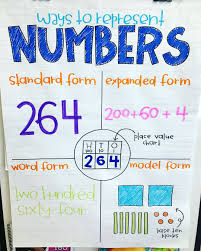 ways to represent
NUMBERS
standard form
expanded form
264
200+60+4
place value
chart
H T O
2 6 4
word form
model form
two hundred
sixty-four
base ten
blocks